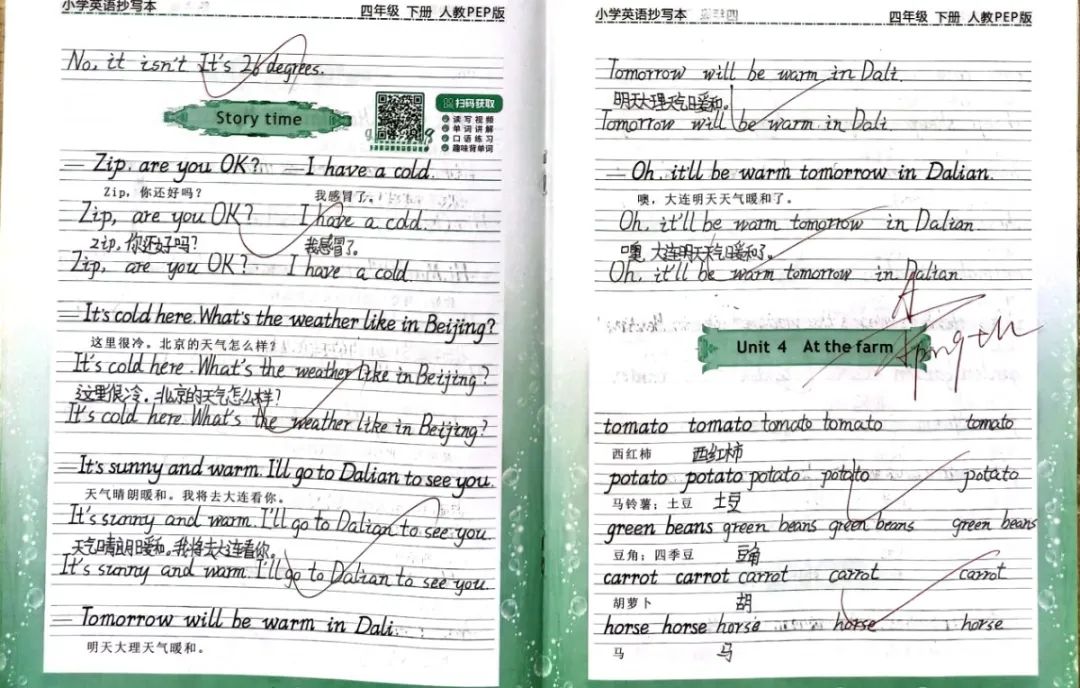 小学英语抄写本
四年级 下册 人教PEP版
No, it isn't It's 26 degrees.
Story time
扫码获取
读写视频
单词讲解
口语练习
趣味背单词
— Zip, are you OK? — I have a cold.
Zip, 你还好吗? 我感冒了。
Zip, are you OK? I have a cold.
Zip, 你还好吗? 我感冒了。
Zip, are you OK? I have a cold
— It's cold here. What's the weather like in Beijing?
这里很冷。北京的天气怎么样?
It's cold here. What's the weather like in Beijing?
这里很冷。北京的天气怎么样?
It's cold here. What's the weather like in Beijing?
— It's sunny and warm. I'll go to Dalian to see you.
天气晴朗暖和。我将去大连看你。
It's sunny and warm. I'll go to Dalian to see you.
天气晴朗暖和。我将去大连看你。
It's sunny and warm. I'll go to Dalian to see you.
— Tomorrow will be warm in Dali.
明天大理天气暖和。
小学英语抄写本
四年级 下册 人教PEP版
Tomorrow will be warm in Dali.
明天大理天气暖和。
Tomorrow will be warm in Dali.
— Oh, it'll be warm tomorrow in Dalian.
噢,大连明天天气暖和了。
Oh, it'll be warm tomorrow in Dalian.
噢,大连明天天气暖和了。
Oh, it'll be warm tomorrow in Dalian.
A
Unit 4 At the farm
tomato tomato tomato tomato tomato
西红柿 西红柿
potato potato potato potato potato
马铃薯;土豆 土豆
green beans green beans green beans green beans
豆角;四季豆 豆角
carrot carrot carrot carrot carrot
胡萝卜 胡
horse horse horse horse horse
马 马